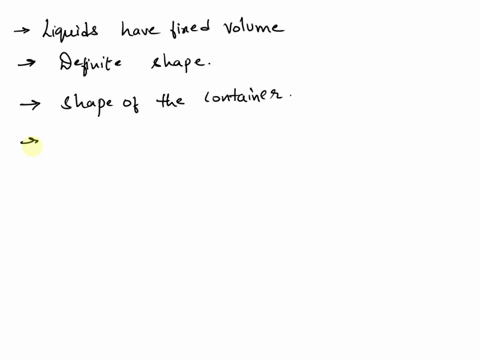 → Liquids have fixed volume
→ Definite shape.
→ Shape of the container.
→